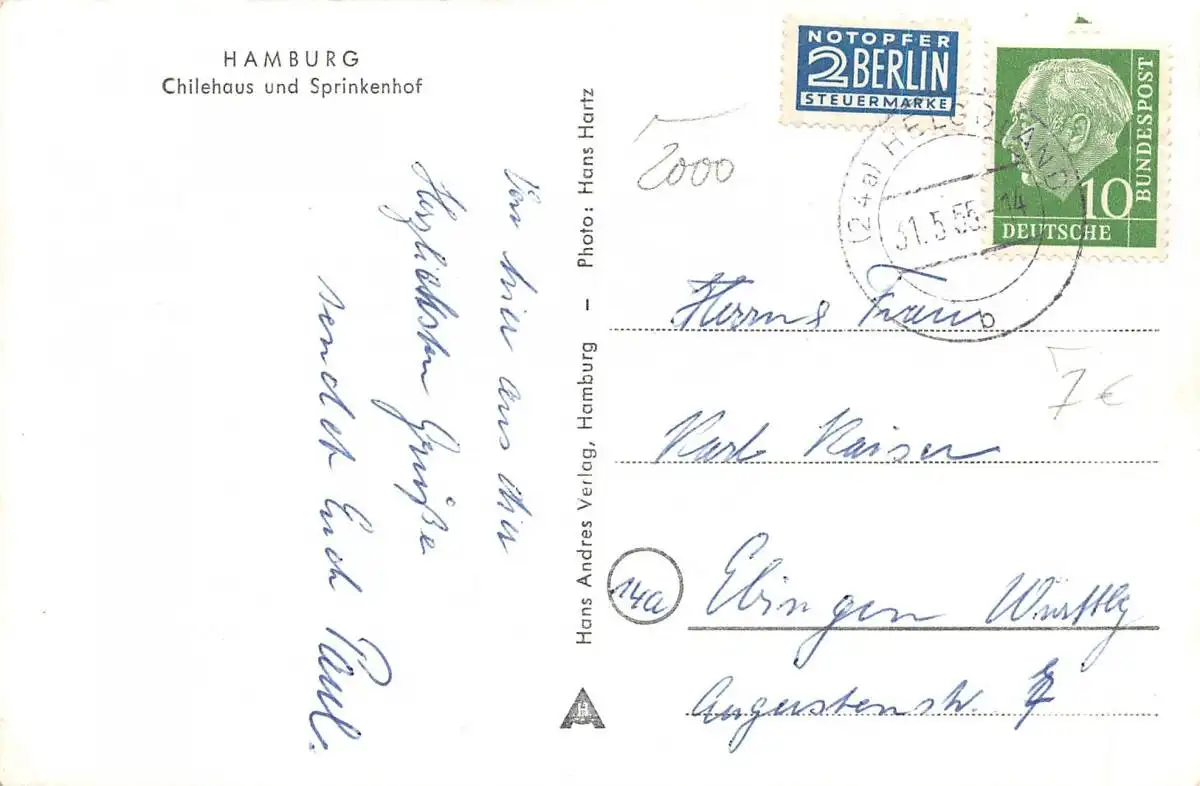 HAMBURG
Chilehaus und Sprinkenhof
Von hier aus die
Herzlichsten Grüße
sendet Euch Paul.
Hans Andres Verlag, Hamburg – Photo: Hans Hartz
2000
NOTOPFER
2 BERLIN
STEUERMARKE
DEUTSCHE
BUNDESPOST
10
(24a) HELGOLAND
31.5.55-14
b
Herrn & Frau
7 €
Karl Kaiser
14a
Ebingen Württbg
Augustenstr. 7